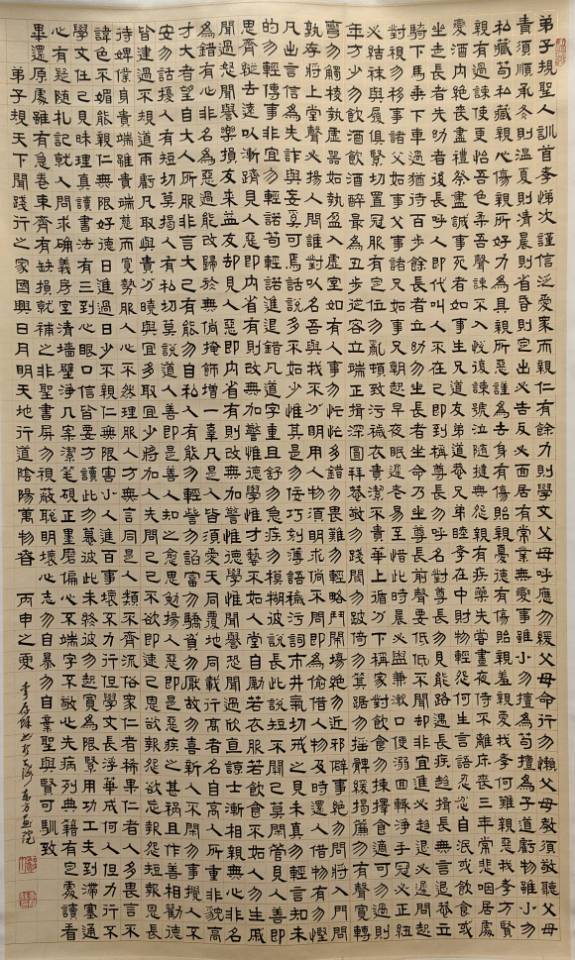 弟子規聖人訓首孝悌次謹信泛愛眾而親仁有餘力則學文父母呼應勿緩父母命行勿懶父母教須敬聽父母
責須順承冬則溫夏則清晨則省昏則定出必告反必面居有常業無變事雖小勿擅為苟擅為子道虧物雖小勿
私藏苟私藏親心傷親所好力為具親所惡謹為去身有傷貽親憂德有傷貽親羞親愛我孝何難親惡我孝方賢
親有過諫使更怡吾色柔吾聲諫不入悅復諫號泣隨撻無怨親有疾藥先嘗晝夜侍不離床喪三年常悲咽居處
變酒肉絕喪盡禮祭盡誠事死者如事生兄道友弟道恭兄弟睦孝在中財物輕怨何生言語忍忿自泯或飲食或
坐走長者先幼者後長呼人即代叫人不在己即到稱尊長勿呼名對尊長勿見能路遇長疾趨揖長無言退恭立
騎下馬乘下車過猶待百步餘長者立幼勿坐長者坐命乃坐尊長前聲要低低不聞卻非宜進必趨退必遲問起
對視勿移事諸父如事父事諸兄如事兄朝起早夜眠遲老易至惜此時晨必盥兼漱口便溺回輒淨手冠必正紐
必結襪與履俱緊切置冠服有定位勿亂頓致污穢衣貴潔不貴華上循分下稱家對飲食勿揀擇食適可勿過則
年方少勿飲酒飲酒醉最為丑步從容立端正揖深圓拜恭敬勿踐閾勿跛倚勿箕踞勿搖髀緩揭簾勿有聲寬轉
彎勿觸棱執虛器如執盈入虛室如有人事勿忙忙多錯勿畏難勿輕略鬥鬧場絕勿近邪僻事絕勿問將入門問
孰存將上堂聲必揚人問誰對以名吾與我不分明用人物須明求倘不問即為偷借人物及時還人借物有勿慳
凡出言信為先詐與妄奚可焉話說多不如少惟其是勿佞巧刻薄語穢污詞市井氣切戒之見未真勿輕言知未
的勿輕傳事非宜勿輕諾苟輕諾進退錯凡道字重且舒勿急疾勿模糊彼說長此說短不關己莫閒管見人善即
思齊縱去遠以漸躋見人惡即內省有則改無加警惟德學惟才藝不如人當自勵若衣服若飲食不如人勿生戚
聞過怒聞譽樂損友來益友卻見人惡即內省有則改無加警惟德學惟聞譽恐聞過欣直諒士漸相親無心非名
為錯有心非名為惡過能改歸於無倘掩飾增一辜凡是人皆須愛天同覆地同載行高者名自高人所重非貌高
才大者望自大人所服非言大己有能勿自私人有能勿輕訾勿諂富勿驕貧勿厭故勿喜新人不閒勿事攪人不
安勿話擾人有短切莫揭人有私切莫說道人善即是善人知之愈思勉揚人惡即是惡疾之甚禍且作善相勸德
皆建過不規道兩虧凡取與貴分曉與宜多取宜少將加人先問己己不欲即速已恩欲報怨欲忘報怨短報恩長
待婢僕身貴端雖貴端慈而寬勢服人心不然理服人方無言同是人類不齊流俗眾仁者稀果仁者人多畏言不
諱色不媚能親仁無限好德日進過日少不親仁無限害小人進百事壞不力行但學文長浮華成何人但力行不
學文任己見昧理真讀書法有三到心眼口信皆要方讀此勿慕彼此未終彼勿起寬為限緊用功工夫到滯塞通
心有疑隨札記就人問求確義房室清墻壁淨几案潔筆硯正墨磨偏心不端字不敬心先病列典籍有定處讀看
畢還原處雖有急卷束齊有缺損就補之非聖書屏勿視蔽聰明壞心志勿自暴勿自棄聖與賢可馴致
弟子規天下聞踐行之家國興日月明天地行道陰陽萬物春 丙申之夏